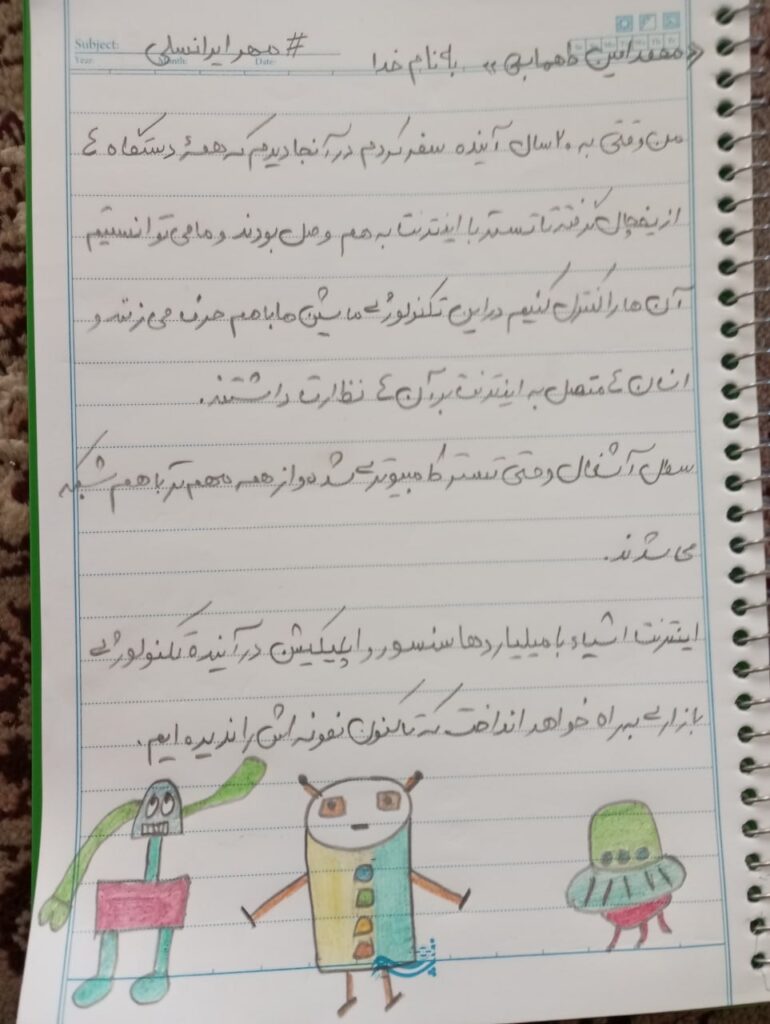 Subject:
Year: Month: Date:
#مهر ایرانسلی
«محمد امین طهمابی» به نام خدا
من وقتی به ۲۰ سال آینده سفر کردم در آنجا دیدم که همهٔ دستگاه ء
از یخچال گرفته تا تستر با اینترنت به هم وصل بودند و ما می توانستیم
آن ها را کنترل کنیم در این تکنولوژی ماشین ها با هم حرف می زنند و
انسان ء متصل به اینترنت بر آن ء نظارت داشتند.
سطل آشغال و حتی تستر کامپیوتری شده و از همه مهم تر با هم شبکه
می شدند.
اینترنت اشیاء با میلیاردها سنسور و اپلیکیشن در آیندهٔ تکنولوژی
بازاری به راه خواهد انداخت که تاکنون نمونه اش را ندیده ایم.